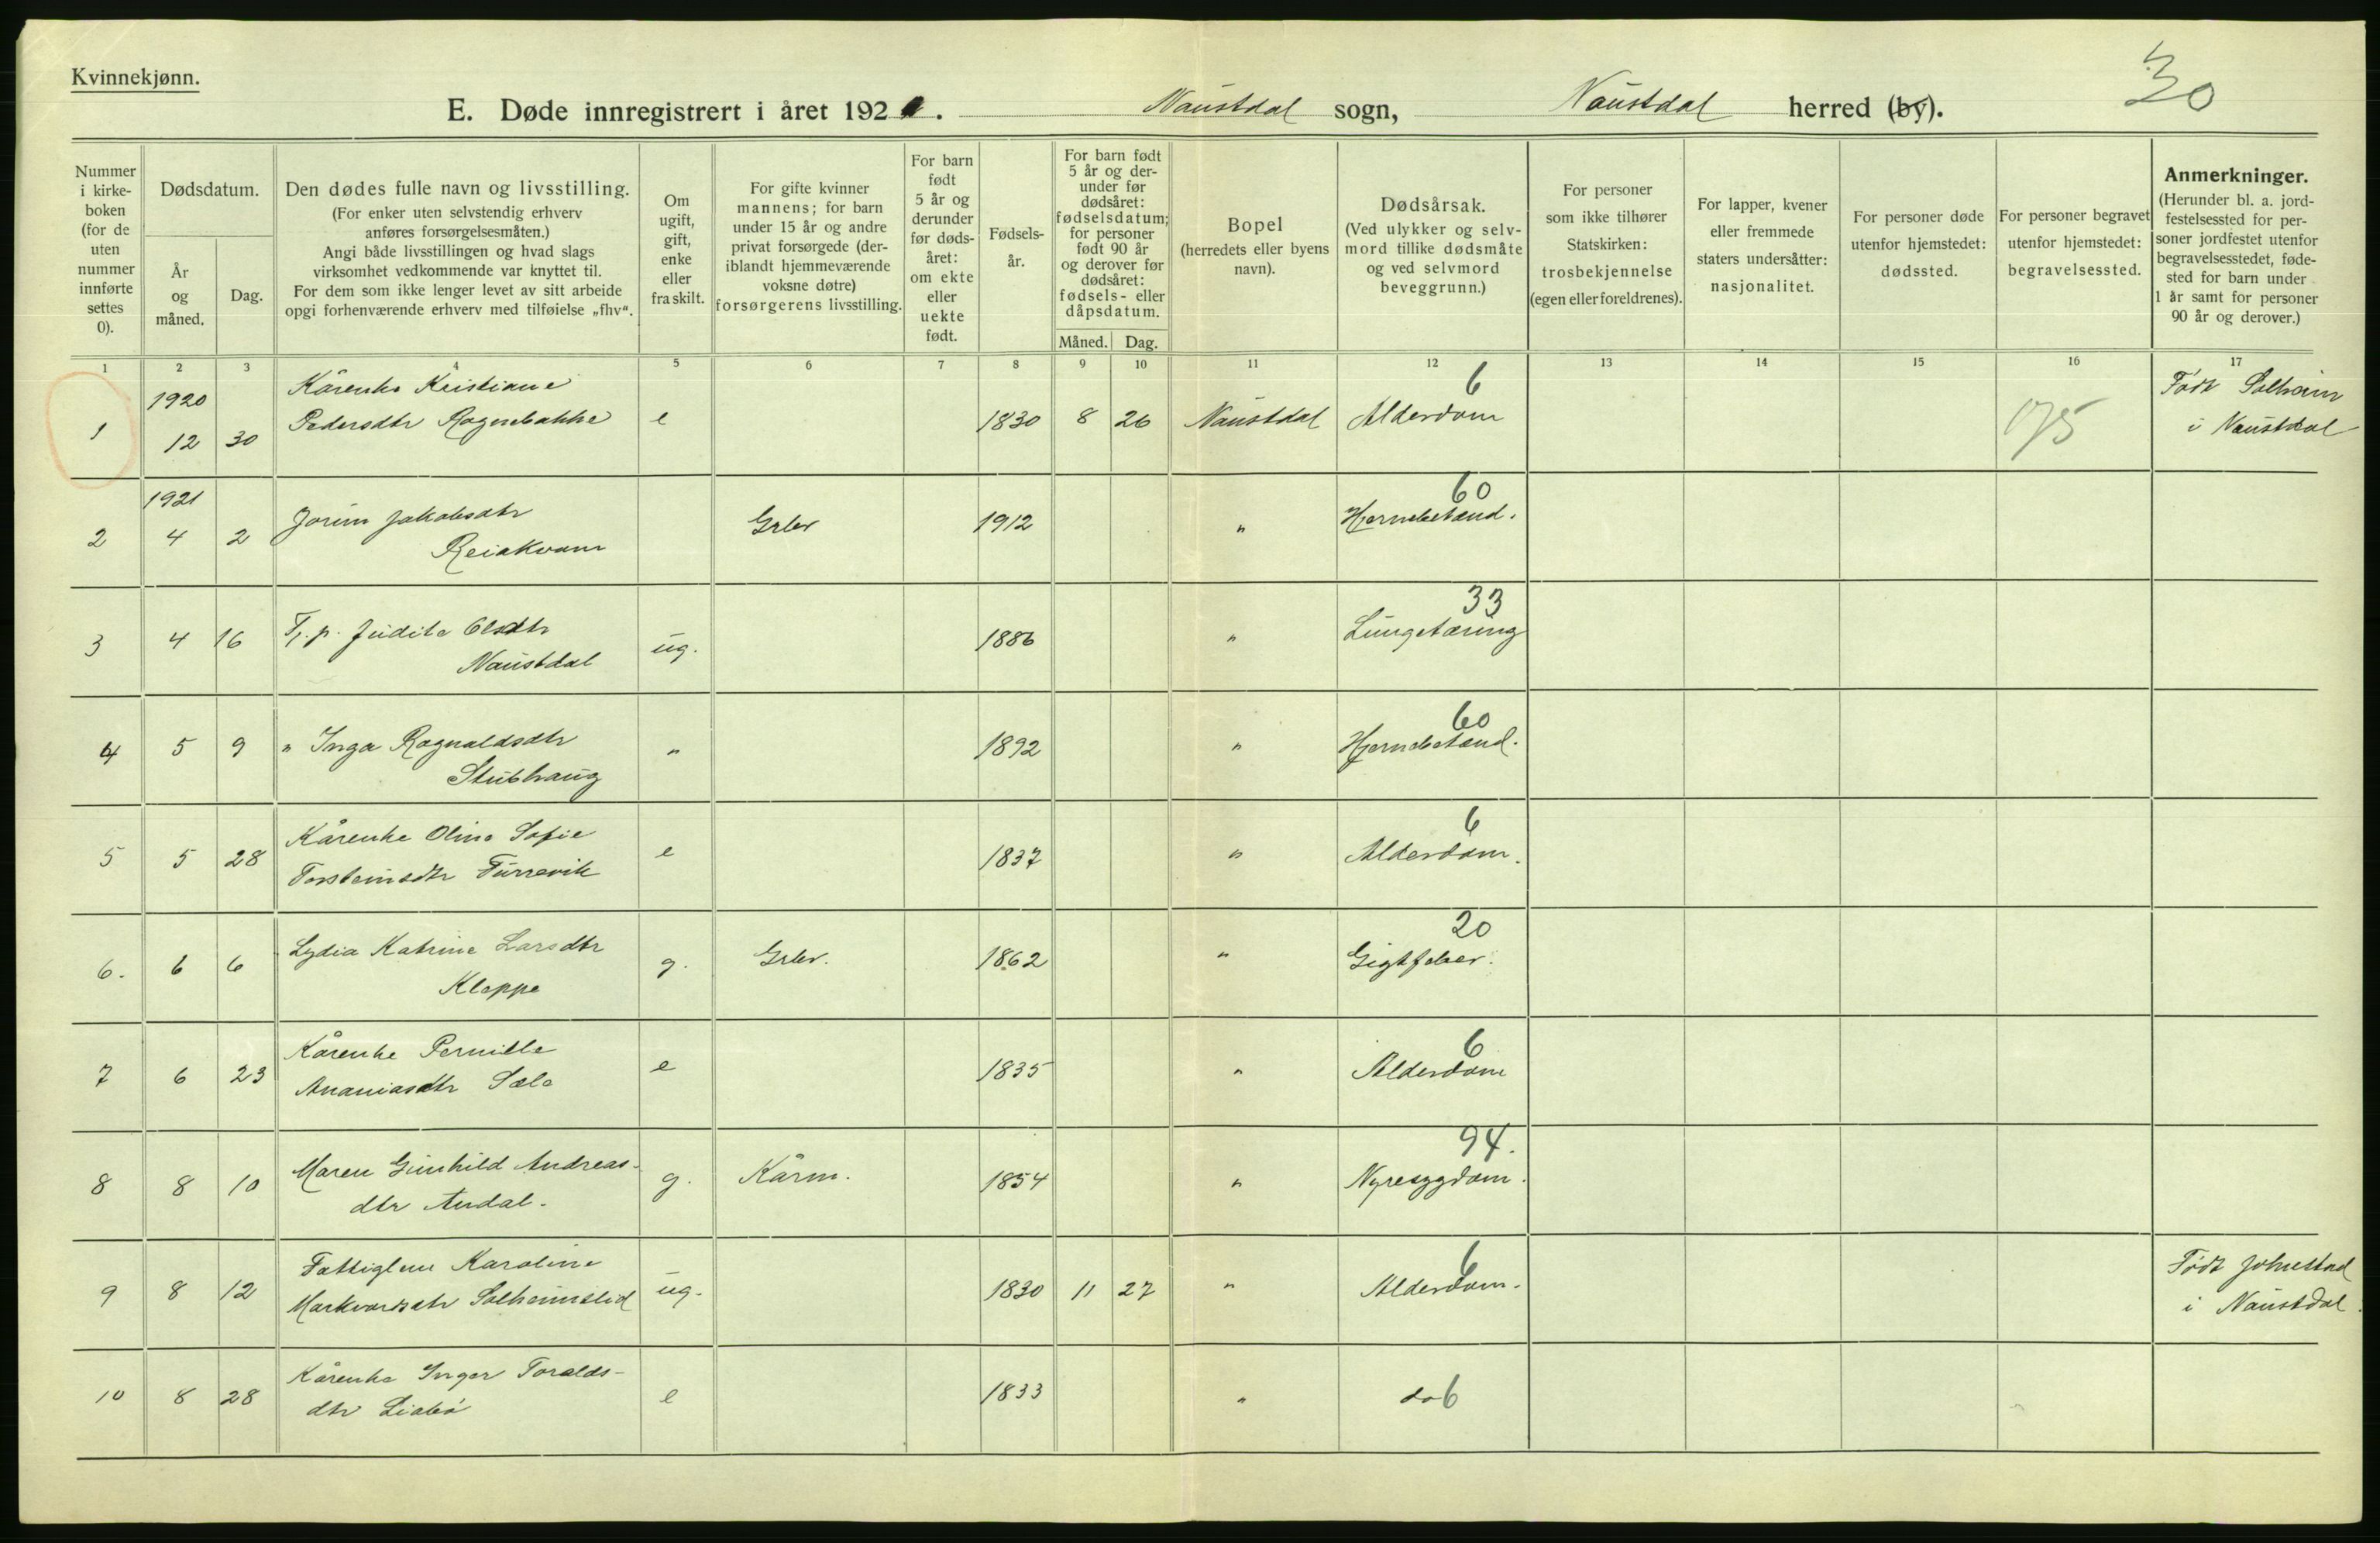 Kvinnekjønn.
30
E. Døde innregistrert i året 1921. Naustdal sogn, Naustdal herred (by).
Nummer i kirke- boken (for de uten nummer innførte settes 0).
Dødsdatum.
År og måned.
Dag.
Den dødes fulle navn og livsstilling.
(For enker uten selvstendig erhverv
anføres forsørgelsesmåten.)
Angi både livsstillingen og hvad slags
virksomhet vedkommende var knyttet til.
For dem som ikke lenger levet av sitt arbeide
opgi forhenværende erhverv med tilføielse „fhv“.
Om ugift, gift, enke eller fraskilt.
For gifte kvinner
mannens; for barn
under 15 år og andre
privat forsørgede (der-
iblandt hjemmeværende
voksne døtre)
forsørgerens livsstilling.
For barn født 5 år og derunder før døds- året: om ekte eller uekte født.
Fødsels- år.
For barn født
5 år og der-
under før
dødsåret:
fødselsdatum;
for personer
født 90 år
og derover før
dødsåret:
fødsels- eller
dåpsdatum.
Måned. Dag.
Bopel
(herredets eller byens
navn).
Dødsårsak.
(Ved ulykker og selv-
mord tillike dødsmåte
og ved selvmord
beveggrunn.)
For personer
som ikke tilhører
Statskirken:
trosbekjennelse
(egen eller foreldrenes).
For lapper, kvener
eller fremmede
staters undersåtter:
nasjonalitet.
For personer døde
utenfor hjemstedet:
dødssted.
For personer begravet
utenfor hjemstedet:
begravelsessted.
Anmerkninger.
(Herunder bl. a. jord-
festelsessted for per-
soner jordfestet utenfor
begravelsesstedet, føde-
sted for barn under
1 år samt for personer
90 år og derover.)
1 2 3 4 5 6 7 8 9 10 11 12 13 14 15 16 17
1920 Kårenke Kristiane 6 Født Solheim
1 12 30 Pedersdtr Ragnebakke e 1830 8 26 Naustdal Alderdom 175 i Naustdal
1921 Jorun Jakobsdtr 60
2 4 2 Reiakvam Grbr 1912 " Hjernebetænd.
33
3 4 16 Tj. p. Judite Olsdtr ug. 1886 " Lungetæring
Naustdal
60
4 5 9 " Inga Ragnvaldsdtr " 1892 " Hjernebetænd.
Stubhaug
Kårenke Olina Sofie 6
5 5 28 Torsteinsdtr Furevik e 1837 " Alderdom.
20
6. 6 6 Lydia Katrine Larsdtr g. Grbr. 1862 " Gigtfeber.
Kleppe
Kårenke Pernille 6
7 6 23 Ananiasdtr Sæle e 1835 " Alderdom
94.
8 8 10 Maren Gunhild Andreas- g. Kårm. 1854 " Nyresygdom.
dtr Andal.
Fattiglem Karoline 6 Født Johnestad
9 8 12 Markvardsdtr Solheimslid ug. 1830 11 27 " Alderdom. i Naustdal.
Kårenke Inger Toralds-
10 8 28 dtr Liabø e 1833 " do 6